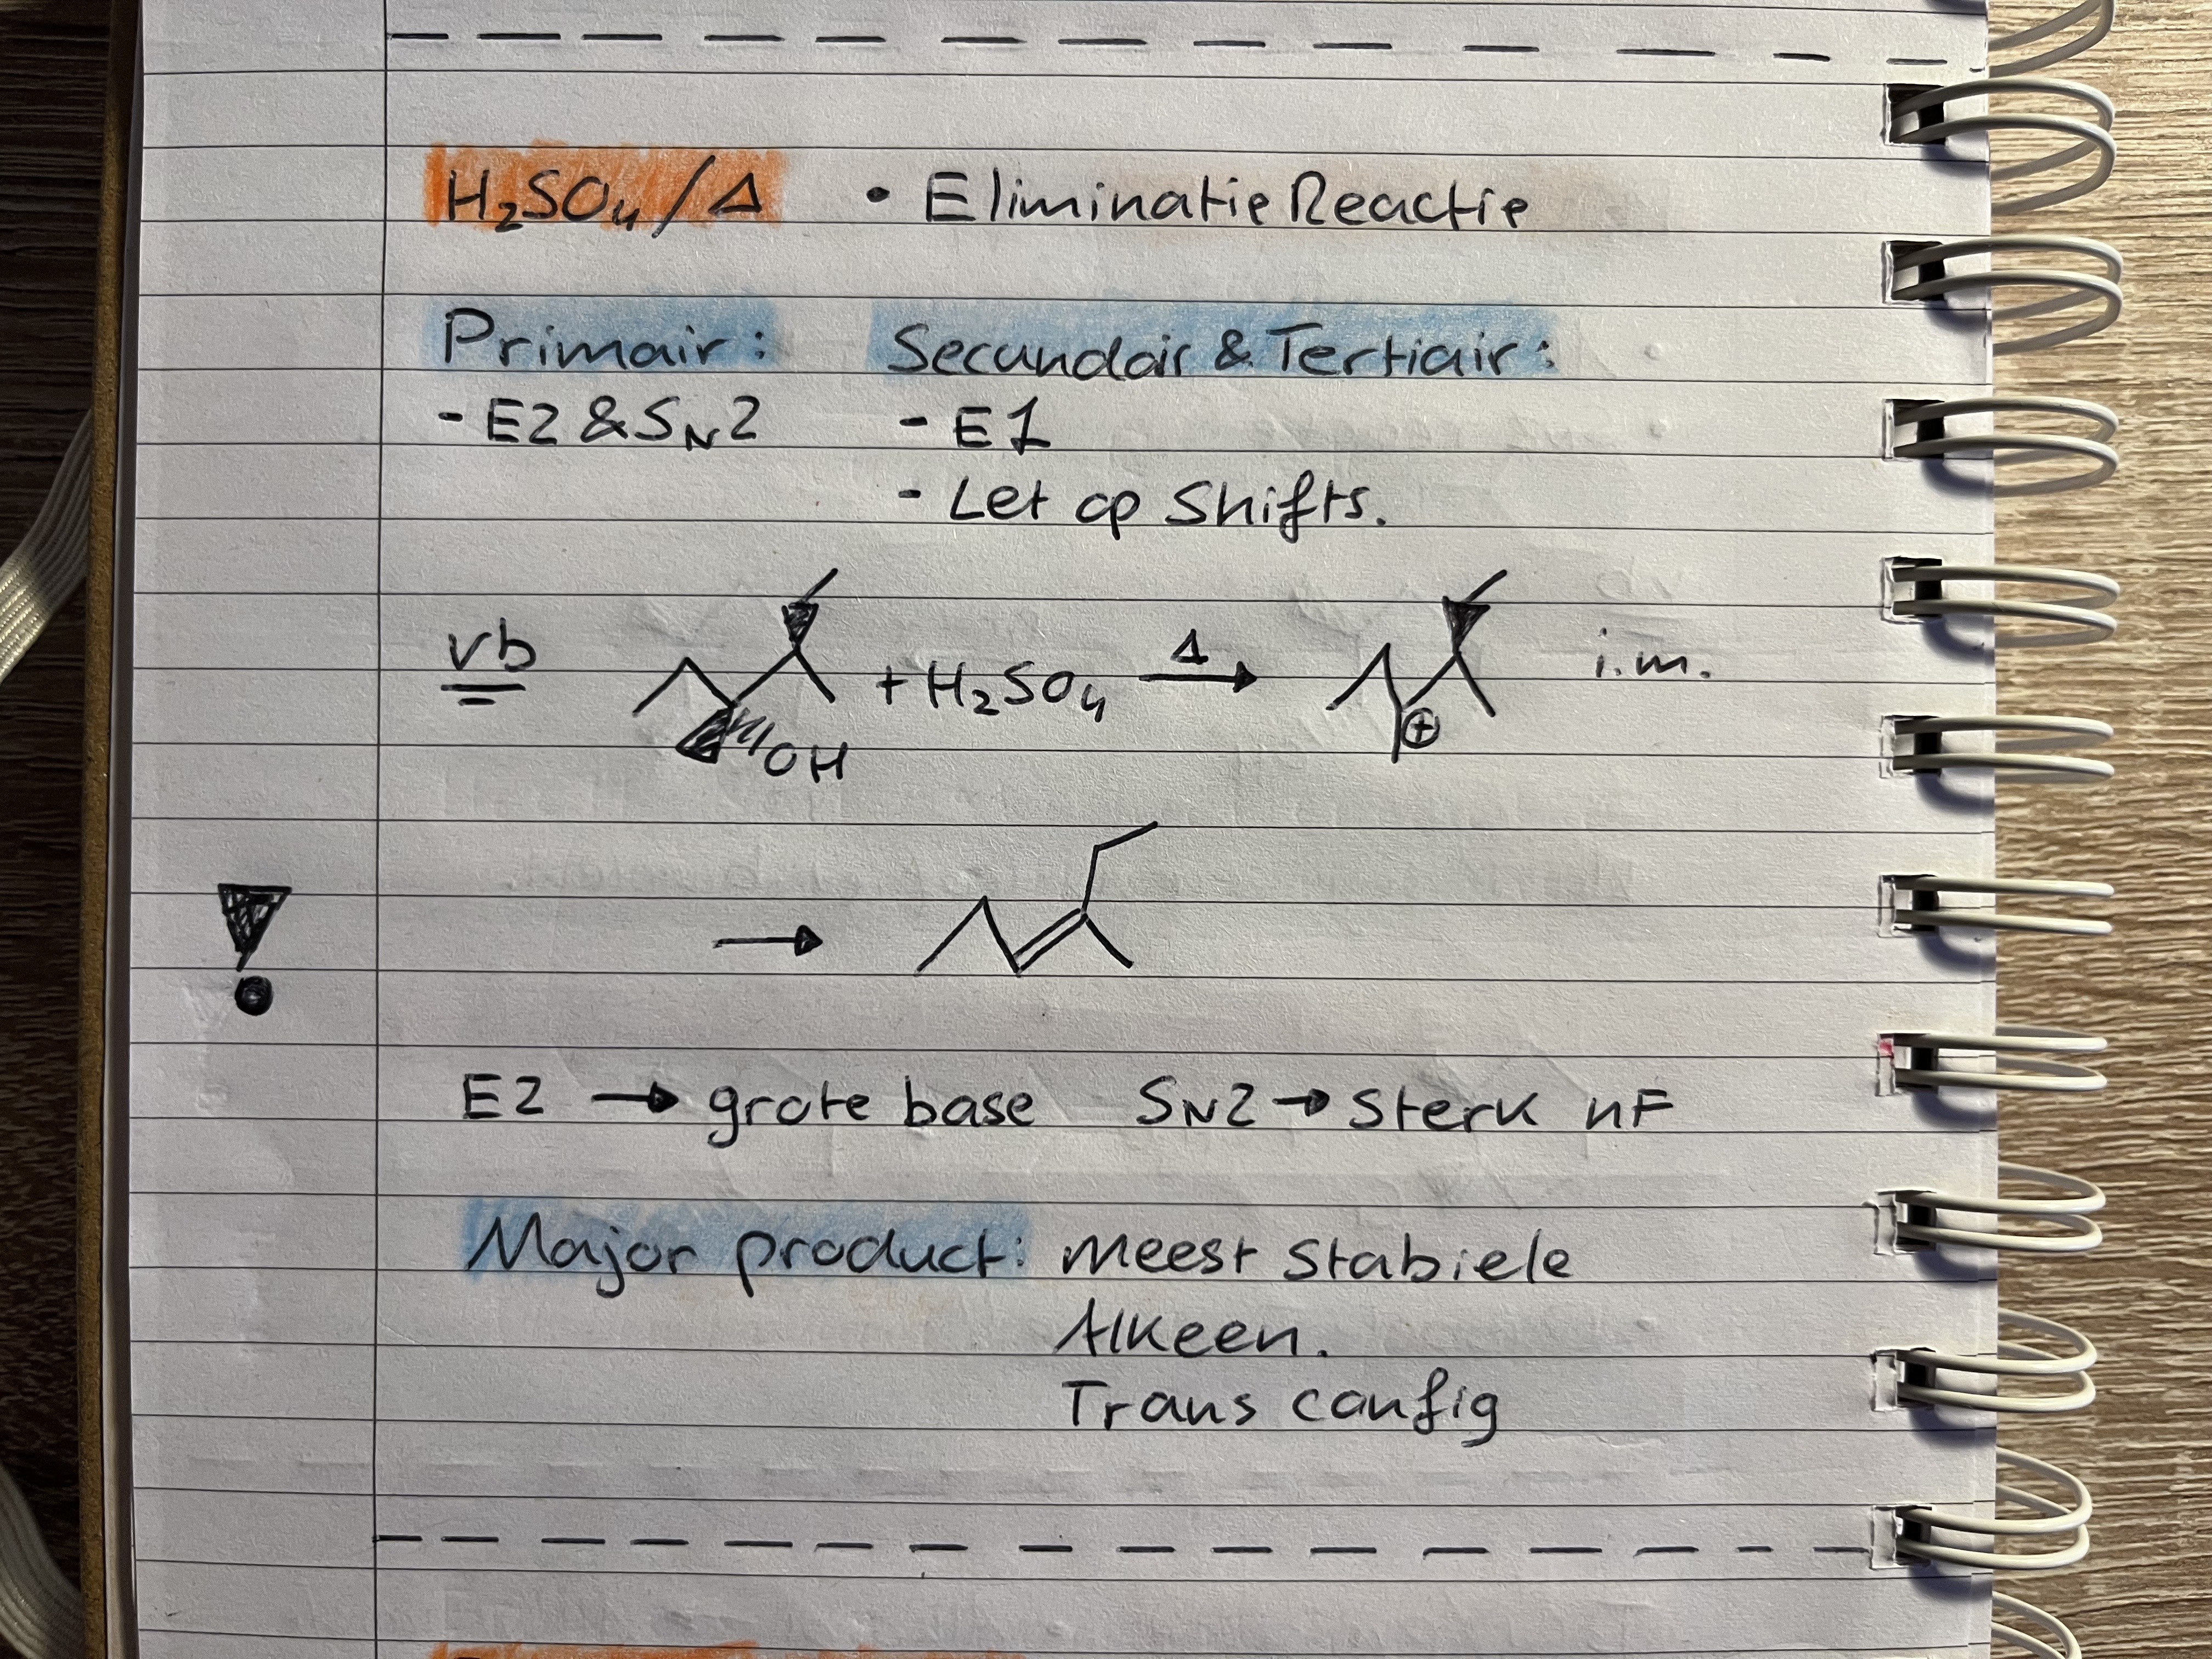 H₂SO₄/Δ • Eliminatie Reactie
Primair: Secundair & Tertiair:
- E2 & SN2 - E1
- Let op Shifts.
vb + H₂SO₄ Δ i.m.
OH ⊕
E2 → grote base SN2 → Sterk nF
Major product: Meest Stabiele
Alkeen.
Trans config